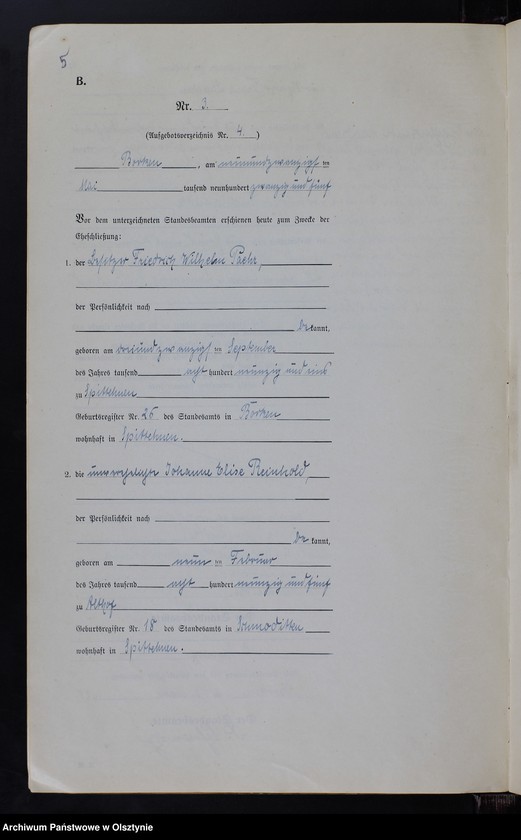 5
B.
Nr. 3.
(Aufgebotsverzeichnis Nr. 4.)
am neunundzwanzigsten
Mai tausend neunhundert zwanzig und fünf
Vor dem unterzeichneten Standesbeamten erschienen heute zum Zwecke der
Eheschließung:
1. der Besitzer Friedrich Wilhelm
der Persönlichkeit nach
bekannt,
geboren am dreiundzwanzigsten September
des Jahres tausend acht hundert neunzig und eins
zu Spittehnen
Geburtsregister Nr. 26 des Standesamts in
wohnhaft in Spittehnen.
2. die unverehelichte Johanne Elise Reinhold,
der Persönlichkeit nach
bekannt,
geboren am neunten Februar
des Jahres tausend acht hundert neunzig und fünf
zu Althof
Geburtsregister Nr. 18 des Standesamts in
wohnhaft in Spittehnen.
Archiwum Państwowe w Olsztynie